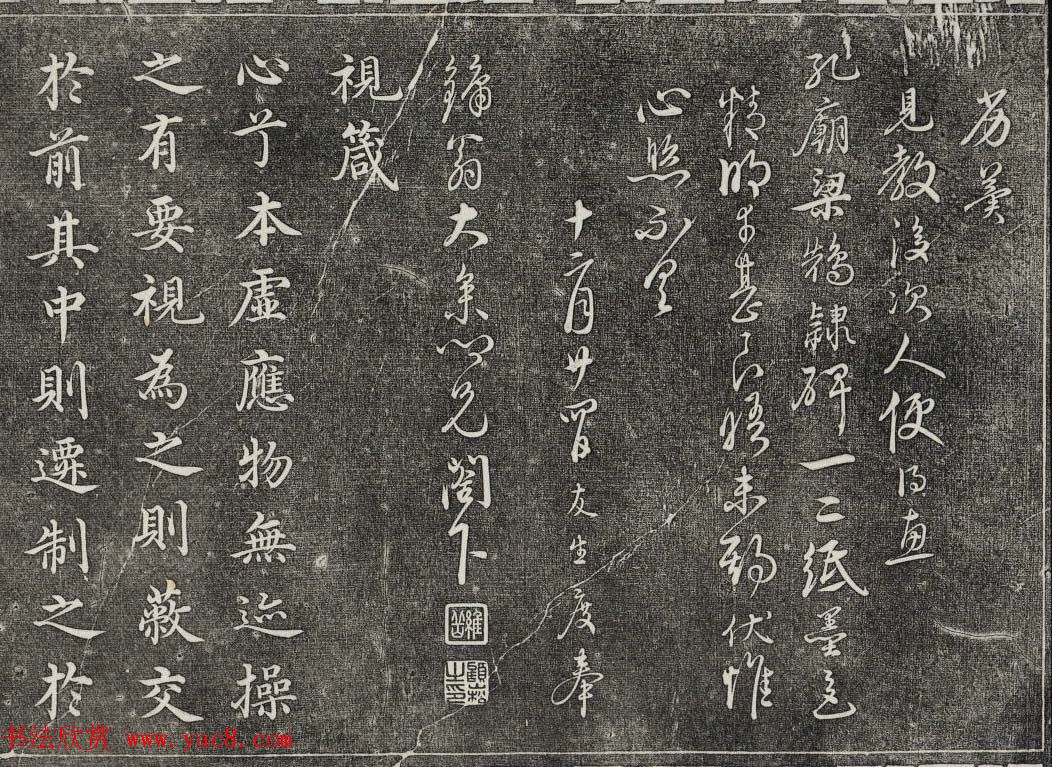 見教後次人便得惠
孔廟梁鵠隷碑一二紙墨色
精明者甚良晤未期伏惟
心照不具
十二月廿四日友生度奉
鏞翁大參兄閣下
視箴
心兮本虛應物無迹操
之有要視為之則蔽交
於前其中則遷制之於
书法欣赏 www.yac8.com